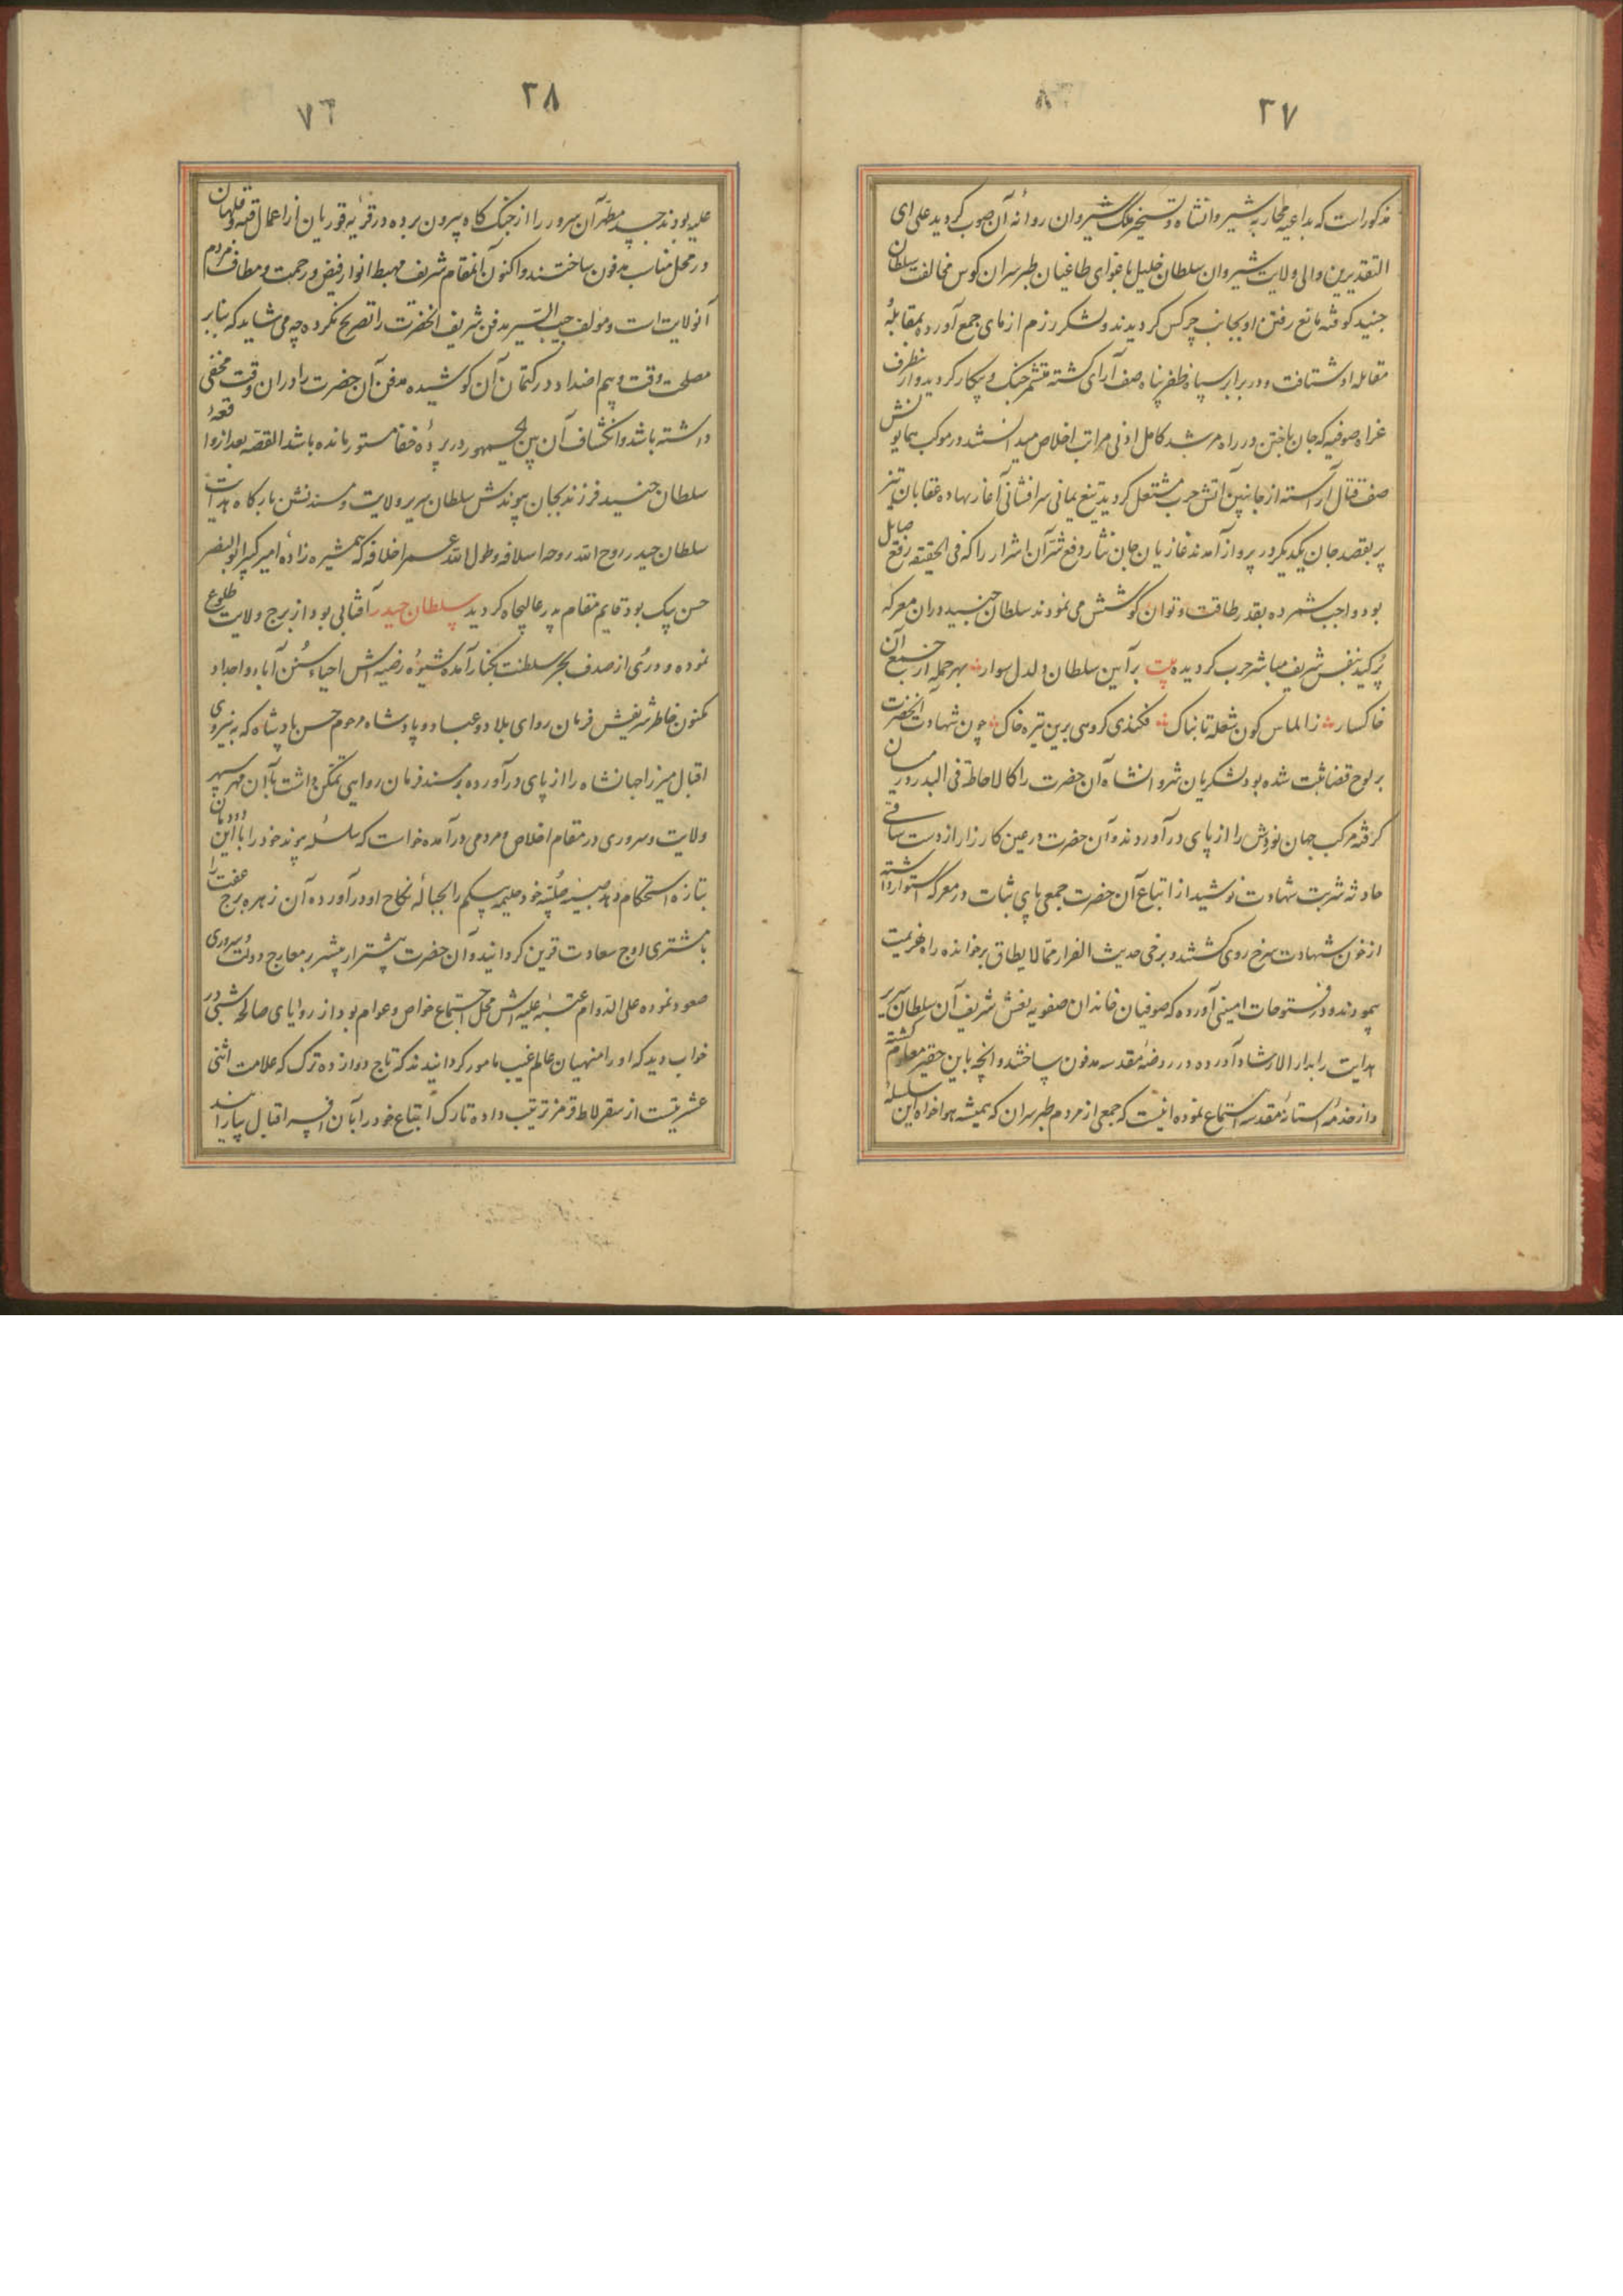 ۳۷
مذکور است که بداعیه محاربه شیروانشاه و تسخیر ملک شیروان روانه آن صوب کردید علی ای
التقدیرین والی ولایت شیروان سلطان خلیل باغوای طاغیان طبرسران کوس مخالفت سلطان
جنید کوفته مانع رفتن او بجانب چرکس کردیدند و لشکر رزم ازمای جمع آورده بمقابله
مقابله او شتافت و در برابر سپاه ظفر پناه صف آرای کشته جنک و پیکار کردید و ازینطرف
غزاه صوفیه که جان باختن در راه مرشد کامل ادنی مراتب اخلاص میدانستند در موکب همایونش
صف قتال آراسته از جانبین آتش حرب مشتعل کردید تیغ یمانی سرافشانی آغاز نهاده عقابان تیز
پر بقصد جان یکدیکر در پرواز آمدند غازیان جان نثار دفع شر آن اشرار را که فی الحقیقه
بود واجب شمرده بقدر طاقت و توان کوشش می نمودند سلطان جنید در ان معرکه
پر کید بنفس شریف مباشر حرب کردیده بیت بر آیین سلطان دلدل سوار بهر حمله از جمع آن
خاکسار ز الماس کون شعله تابناک فکندی کروهی برین تیره خاک چون شهادت آنحضرت
بر لوح قضا ثبت شده بود لشکریان شروانشاه آن حضرت را کالاحاطة فی البدر در میان
کرفته مرکب جهان نوردش را از پای در آوردند و آن حضرت در عین کارزار از دست ساقی
حادثه شربت شهادت نوشید از اتباع آن حضرت جمعی پای ثبات در معرکه استوار داشته
از خون شهادت سرخ روی کشتند و برخی حدیث الفرار مما لا یطاق برخوانده راه هزیمت
پیمودند و در فتوحات امینی آورده که صوفیان خاندان صفویه نعش شریف آن سلطان سریر
هدایت را بدار الارشاد آورده در روضه مقدسه مدفون ساختند و انچه باین حقیر معلوم کشته
و از خدمه آستانه مقدسه استماع نموده اینست که جمعی از مردم طبرسران که همیشه هواخواه این سلسله
۳۸
۷۶
علیه بودند جسد مطهر آن سرور را از جنک کاه بیرون برده در قریه قوریان از اعمال
در محل مناسب مدفون ساختند و اکنون آنمقام شریف مهبط انوار فیض و رحمت و مطاف مردم
آنولایت است و مؤلف حبیب السیر مدفن شریف آنحضرت را تصریح نکرده چه می شاید که بنابر
مصلحت وقت و بیم اضداد در کتمان آن کوشیده مدفن آن حضرت را دران وقت مخفی
داشته باشد و انکشاف آن بین الجمهور در پرده خفا مستور مانده باشد القصه بعد از واقعه
سلطان جنید فرزند بجان پیوندش سلطان سریر ولایت و مسندنشین بارکاه هدایت
سلطان حیدر روح الله روح اسلافه و طول الله عمر اخلافه که همشیره زاده امیر کبیر ابو النصر
حسن بیک بود قایم مقام پدر عالیجاه کردید سلطان حیدر آفتابی بود از برج ولایت طلوع
نموده و دری از صدف بحر سلطنت بکنار آمده شیوه رضیه اش احیاء سنن آباء و اجداد
مکنون خاطر شریفش فرمان روای بلاد و عباد و پادشاه مرحوم حسن پادشاه که به نیروی
اقبال میرزا جهانشاه را از پای در آورده بر مسند فرمان روایی تمکن داشت با آن مهر سپهر
ولایت و سروری در مقام اخلاص و مردمی در آمده خواست که سلسله پیوند خود را با این دودمان
بتازه استحکام دهد صبیه صلبیه خود حلیمه بیکم را بحباله نکاح او در آورده آن زهره برج عفت را
با مشتری اوج سعادت قرین کردانید و آن حضرت بیشتر از پیشتر بر معارج دولت و سروری
صعود نموده علی الدوام عتبه علیه اش محل اجتماع خواص و عوام بود از رؤیای صالحه شبی در
خواب دید که او را منهیان عالم غیب مامور کردانیدند که تاج دوازده ترک که علامت اثنی
عشریتست از سقرلاط قرمز ترتیب داده تارک اتباع خود را بآن افسر اقبال بیاراید